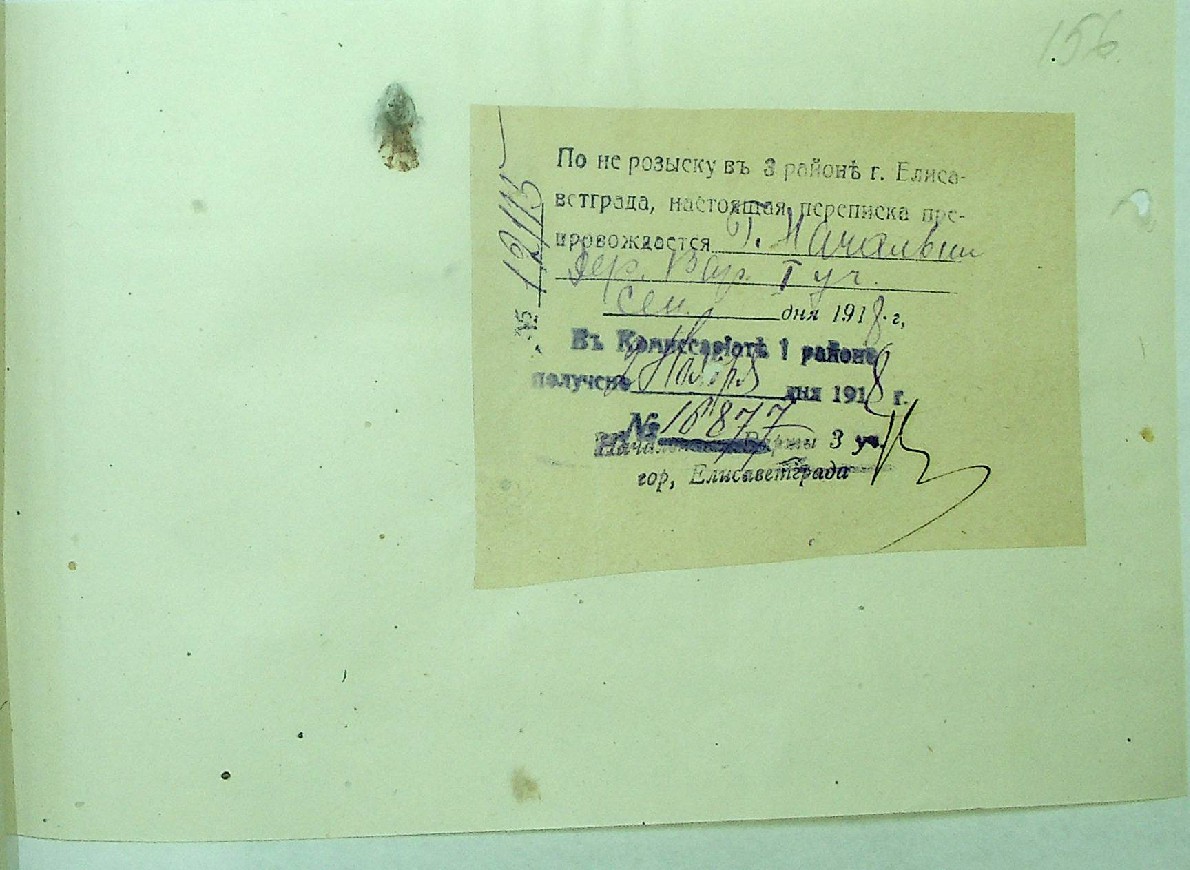 156
По не розыску въ 3 районѣ г. Елиса-
ветграда, настоящая переписка пре-
провождается Г. Начальни
Держ. Вар. I уч.
дня 1918 г,
№ 12115
Въ Комиссаріатѣ 1 района
получено Ноября дня 1918 г.
№ 16877
Начальникъ Варты 3 уч.
гор, Елисаветграда